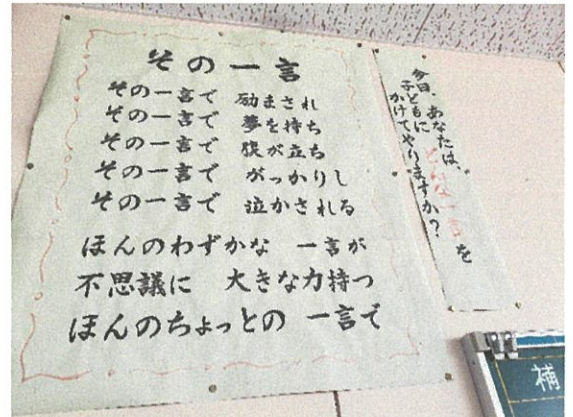 その一言
その一言で 励まされ
その一言で 夢を持ち
その一言で 腹が立ち
その一言で がっかりし
その一言で 泣かされる
ほんのわずかな 一言が
不思議に 大きな力持つ
ほんのちょっとの 一言で
今日、あなたは、どんな一言を
子どもに
かけてやりますか?
補